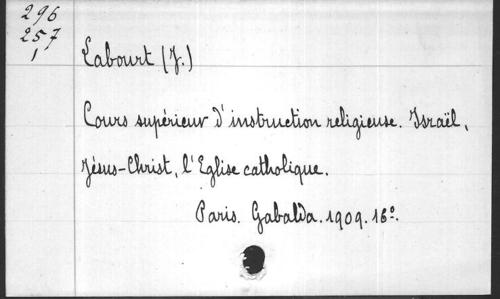 296
257
1
Labourt (J.)
Cours supérieur d'instruction religieuse. Israël,
Jésus-Christ, l'Eglise catholique.
Paris. Gabalda. 1909. 16º.